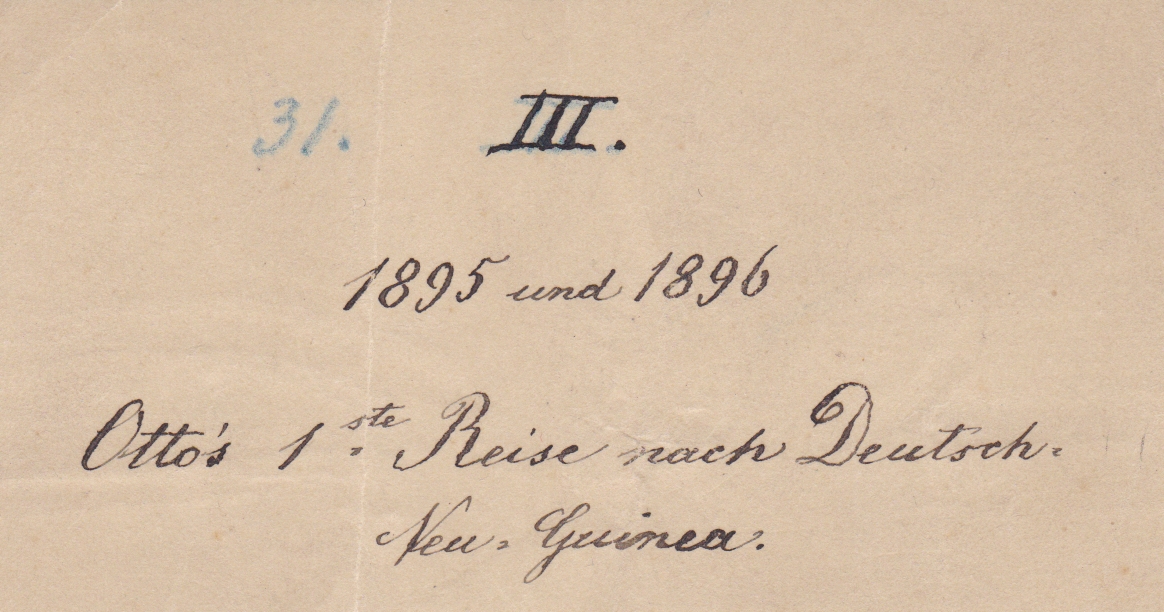 31. III.
1895 und 1896
Otto's 1ste Reise nach Deutsch-
Neu-Guinea.